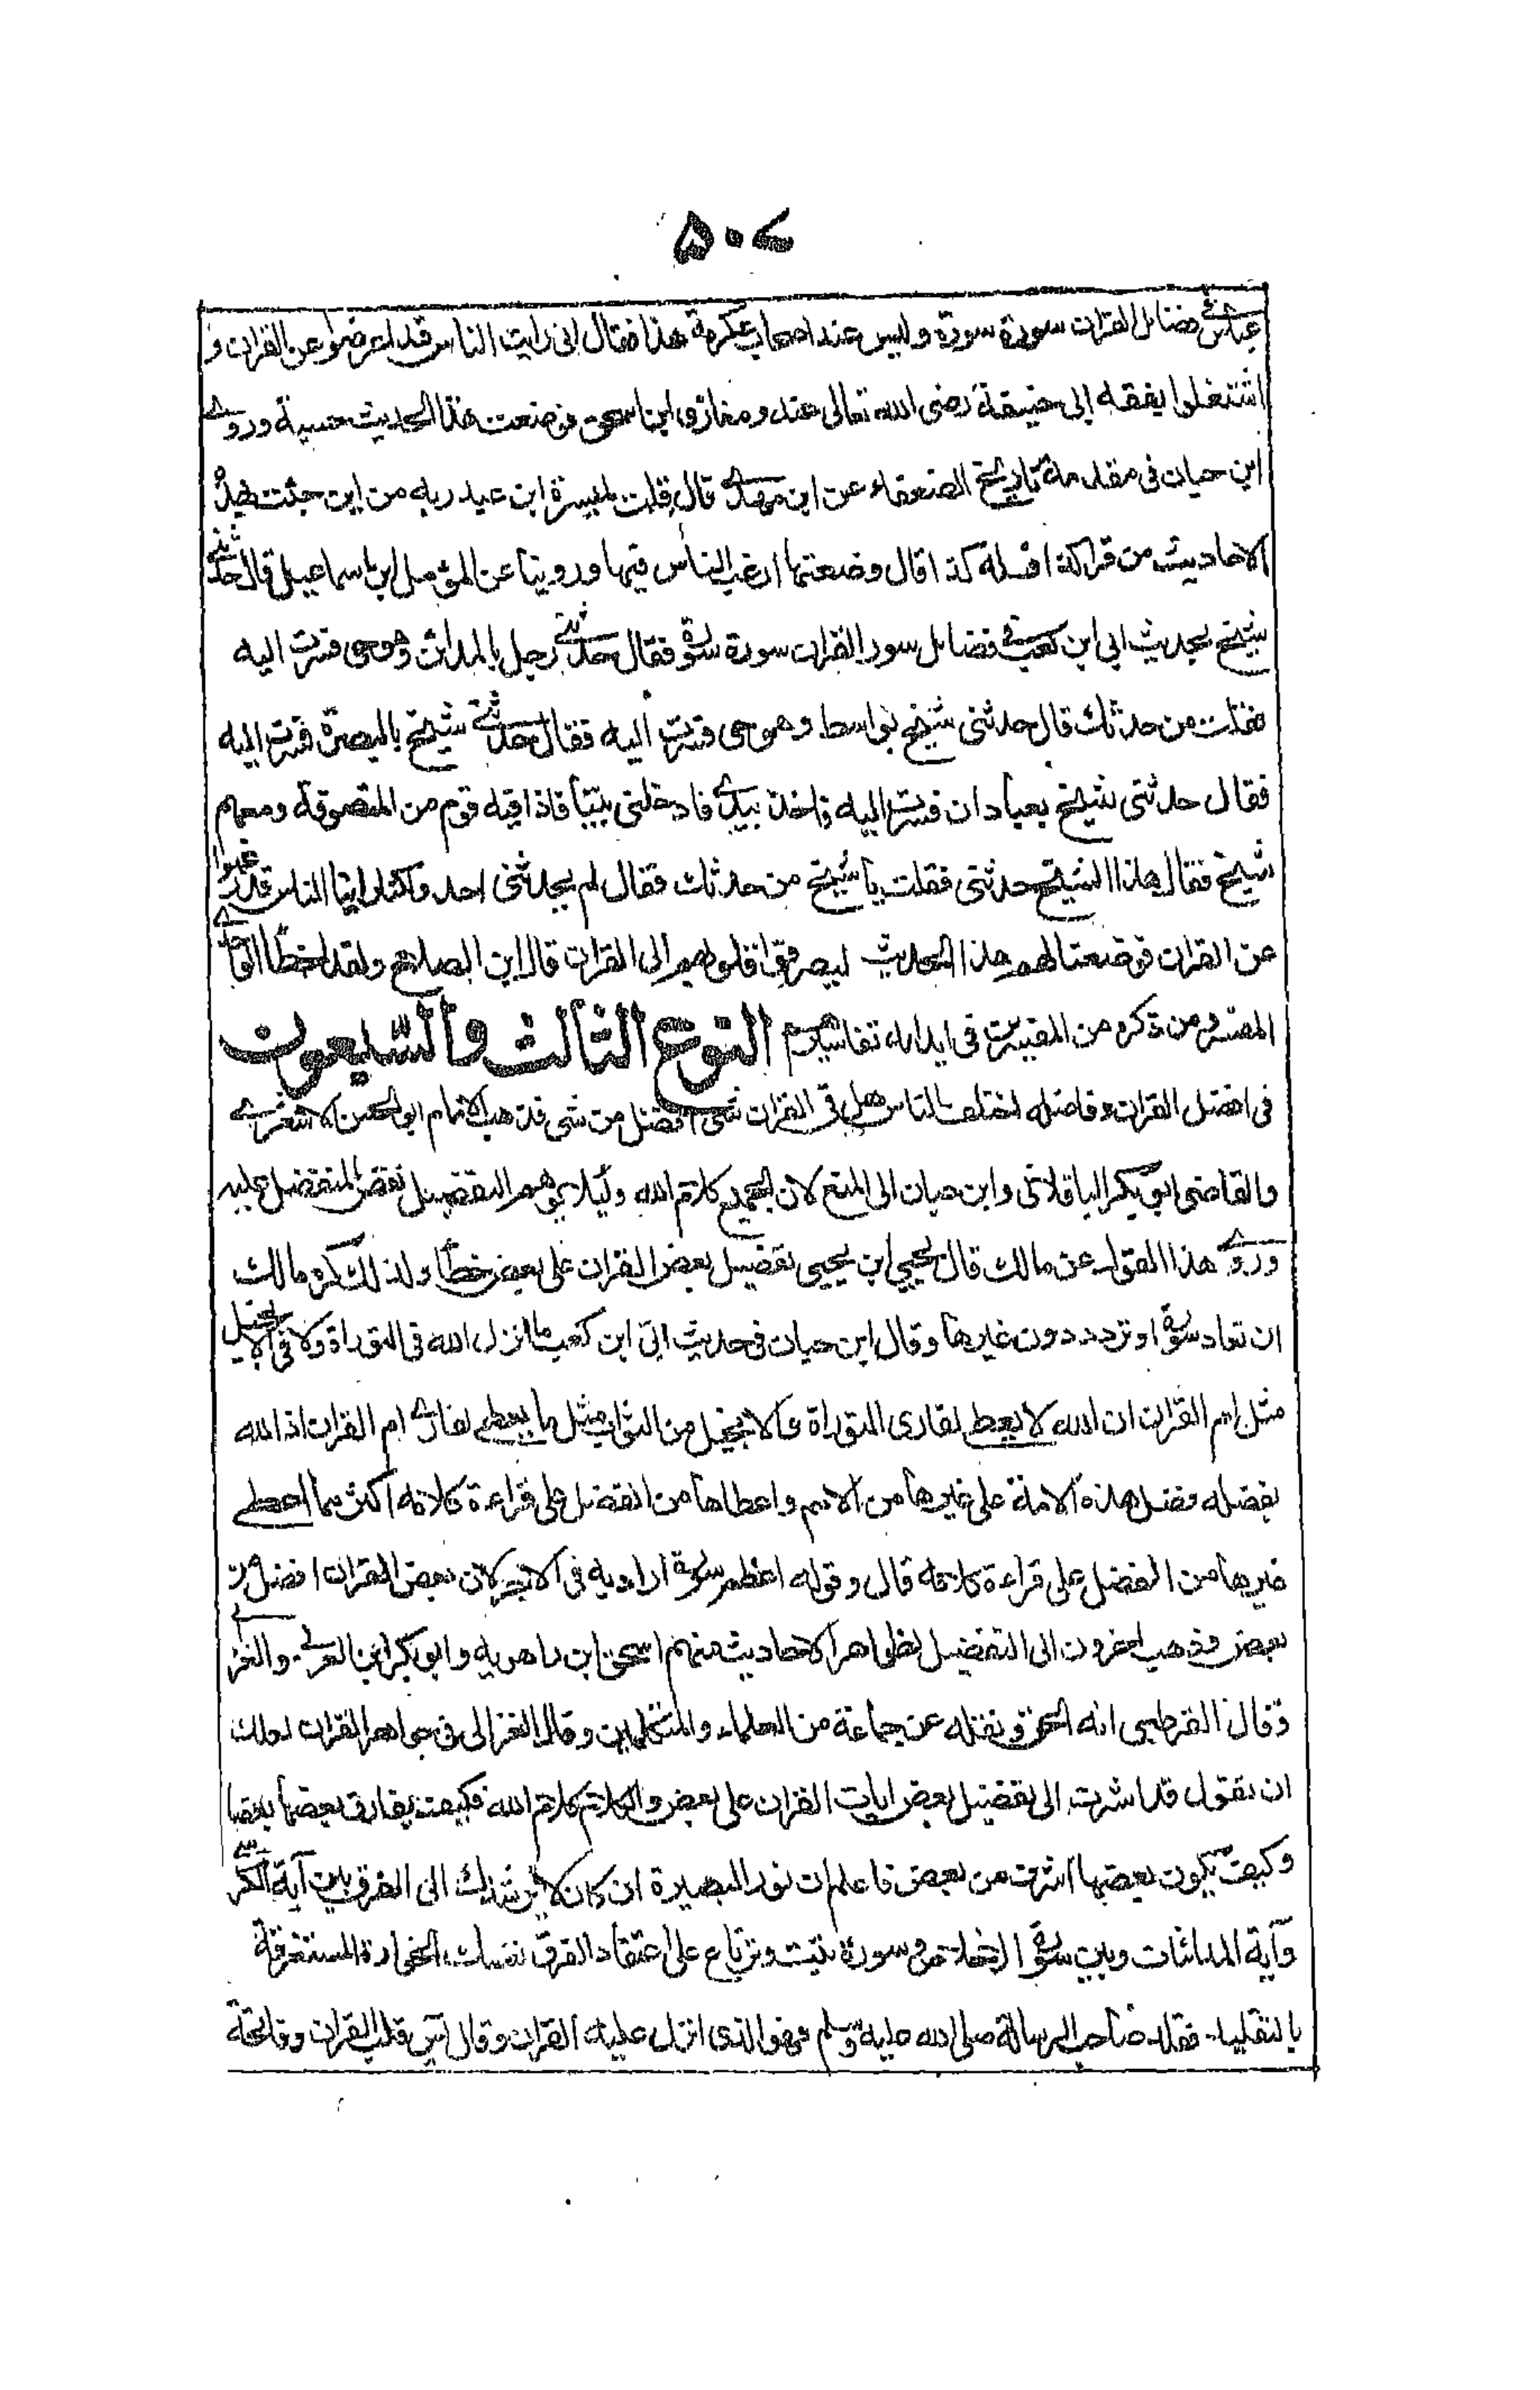 ۵۰۷
عباس فى فضائل القران سورة سورة وليس عند اصحاب عكرمة هذا فقال انى رايت الناس قد اعرضوا عن القران و
اشتغلوا بفقه ابى حنيفة رضى الله تعالى عنه ومغازى ابن اسحق فوضعت هذا الحديث حسبة وروى
ابن حبان فى مقدمة تاريخ الضعفاء عن ابن مهدى قال قلت لميسرة ابن عبد ربه من اين جئت بهذه
الاحاديث من قرا كذا فله كذا قال وضعتها ارغب الناس فيها وروينا عن المؤمل ابن اسماعيل قال حدثنى
شيخ بحديث ابى ابن كعب فى فضائل سور القران سورة سورة فقال حدثنى رجل بالمدائن وهو حى فسرت اليه
فقلت من حدثك قال حدثنى شيخ بواسط وهو حى فسرت اليه فقال حدثنى شيخ بالبصرة فسرت اليه
فقال حدثنى شيخ بعبادان فسرت اليه فاخذ بيدى فادخلنى بيتا فاذا فيه قوم من المتصوفة ومعهم
شيخ فقال هذا الشيخ حدثنى فقلت يا شيخ من حدثك فقال لم يحدثنى احد ولكنا راينا الناس قد رغبوا
عن القران فوضعنا لهم هذا الحديث ليصرفوا قلوبهم الى القران قال ابن الصلاح ولقد اخطأ الواحدى
المفسر ومن ذكره من المفسرين فى ايداعه تفاسيرهم النوع الثالث والسبعون
فى افضل القران وفاضله اختلف الناس هل فى القران شى افضل من شى فذهب الامام ابو الحسن الاشعرى
والقاضى ابو بكر الباقلانى وابن حبان الى المنع لان الجميع كلام الله ولئلا يوهم التفضيل نقص المفضل عليه
وروى هذا القول عن مالك قال يحيى ابن يحيى تفضيل بعض القران على بعض خطأ ولذلك كره مالك
ان تعاد سورة او تردد دون غيرها وقال ابن حبان فى حديث ابى ابن كعب ما انزل الله فى التوراة ولا فى الانجيل
مثل ام القران ان الله لا يعطى لقارى التوراة والانجيل من الثواب مثل ما يعطى لقارى ام القران اذ الله
بفضله فضل هذه الامة على غيرها من الامم واعطاها من الفضل على قراءة كلامه اكثر مما اعطى
غيرها من الفضل على قراءة كلامه قال وقوله اعظم سورة اراد به فى الاجر لا ان بعض القران افضل من
بعض وذهب اخرون الى التفضيل لظواهر الاحاديث منهم اسحق ابن راهويه وابو بكر ابن العربى والغزالى
وقال القرطبى انه الحق ونقله عن جماعة من العلماء والمتكلمين وقال الغزالى فى جواهر القران لعلك
ان تقول قد اشرت الى تفضيل بعض ايات القران على بعض والكلام كلام الله فكيف يفارق بعضها بعضا
وكيف يكون بعضها اشرف من بعض فاعلم ان نور البصيرة ان كان لا يرشدك الى الفرق بين آية الكرسى
وآية المداينات وبين سورة الاخلاص وسورة تبت وترتاع على اعتقاد الفرق نفسك الخوارة المستغرقة
بالتقليد فقلد صاحب الرسالة صلى الله عليه وسلم فهو الذى انزل عليه القران وقال يس قلب القران وفاتحة